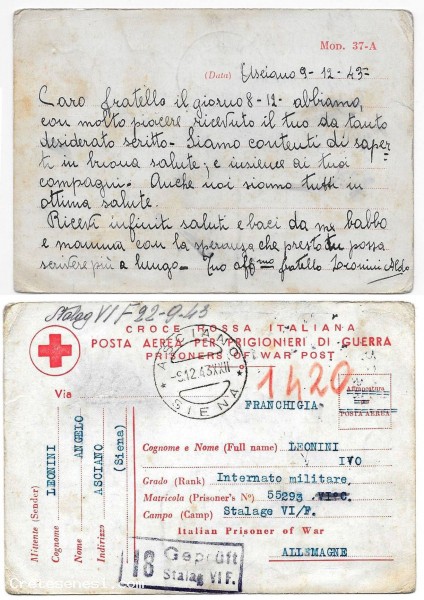 Mod. 37-A
(Data) Asciano 9-12-43-
Caro fratello il giorno 8-12- abbiamo,
con molto piacere ricevuto il tuo da tanto
desiderato scritto- Siamo contenti di saper
ti in buona salute; e insieme ai tuoi
compagni. Anche noi siamo tutti in
ottima salute.
Ricevi infiniti saluti e baci da me babbo
e mamma con la speranza che presto tu possa
scrivere più a lungo- Tuo aff.mo fratello Leonini Aldo
Stalag VI F 22-9-43
CROCE ROSSA ITALIANA
POSTA AEREA PER PRIGIONIERI DI GUERRA
PRISONERS OF WAR POST
ASCIANO
-9.12.43XXII
SIENA
1420
Via
FRANCHIGIA
POSTA AEREA
Mittente (Sender)
Cognome LEONINI
Nome ANGELO
Indirizzo ASCIANO
(Siena)
Cognome e Nome (Full name) LEONINI
IVO
Grado (Rank) Internato militare,
Matricola (Prisoner's No) 55293
Campo (Camp) Stalage VI/F.
Italian Prisoner of War
ALLEMAGNE
18 Geprüft
Stalag VI F.
Cratesenesi.com